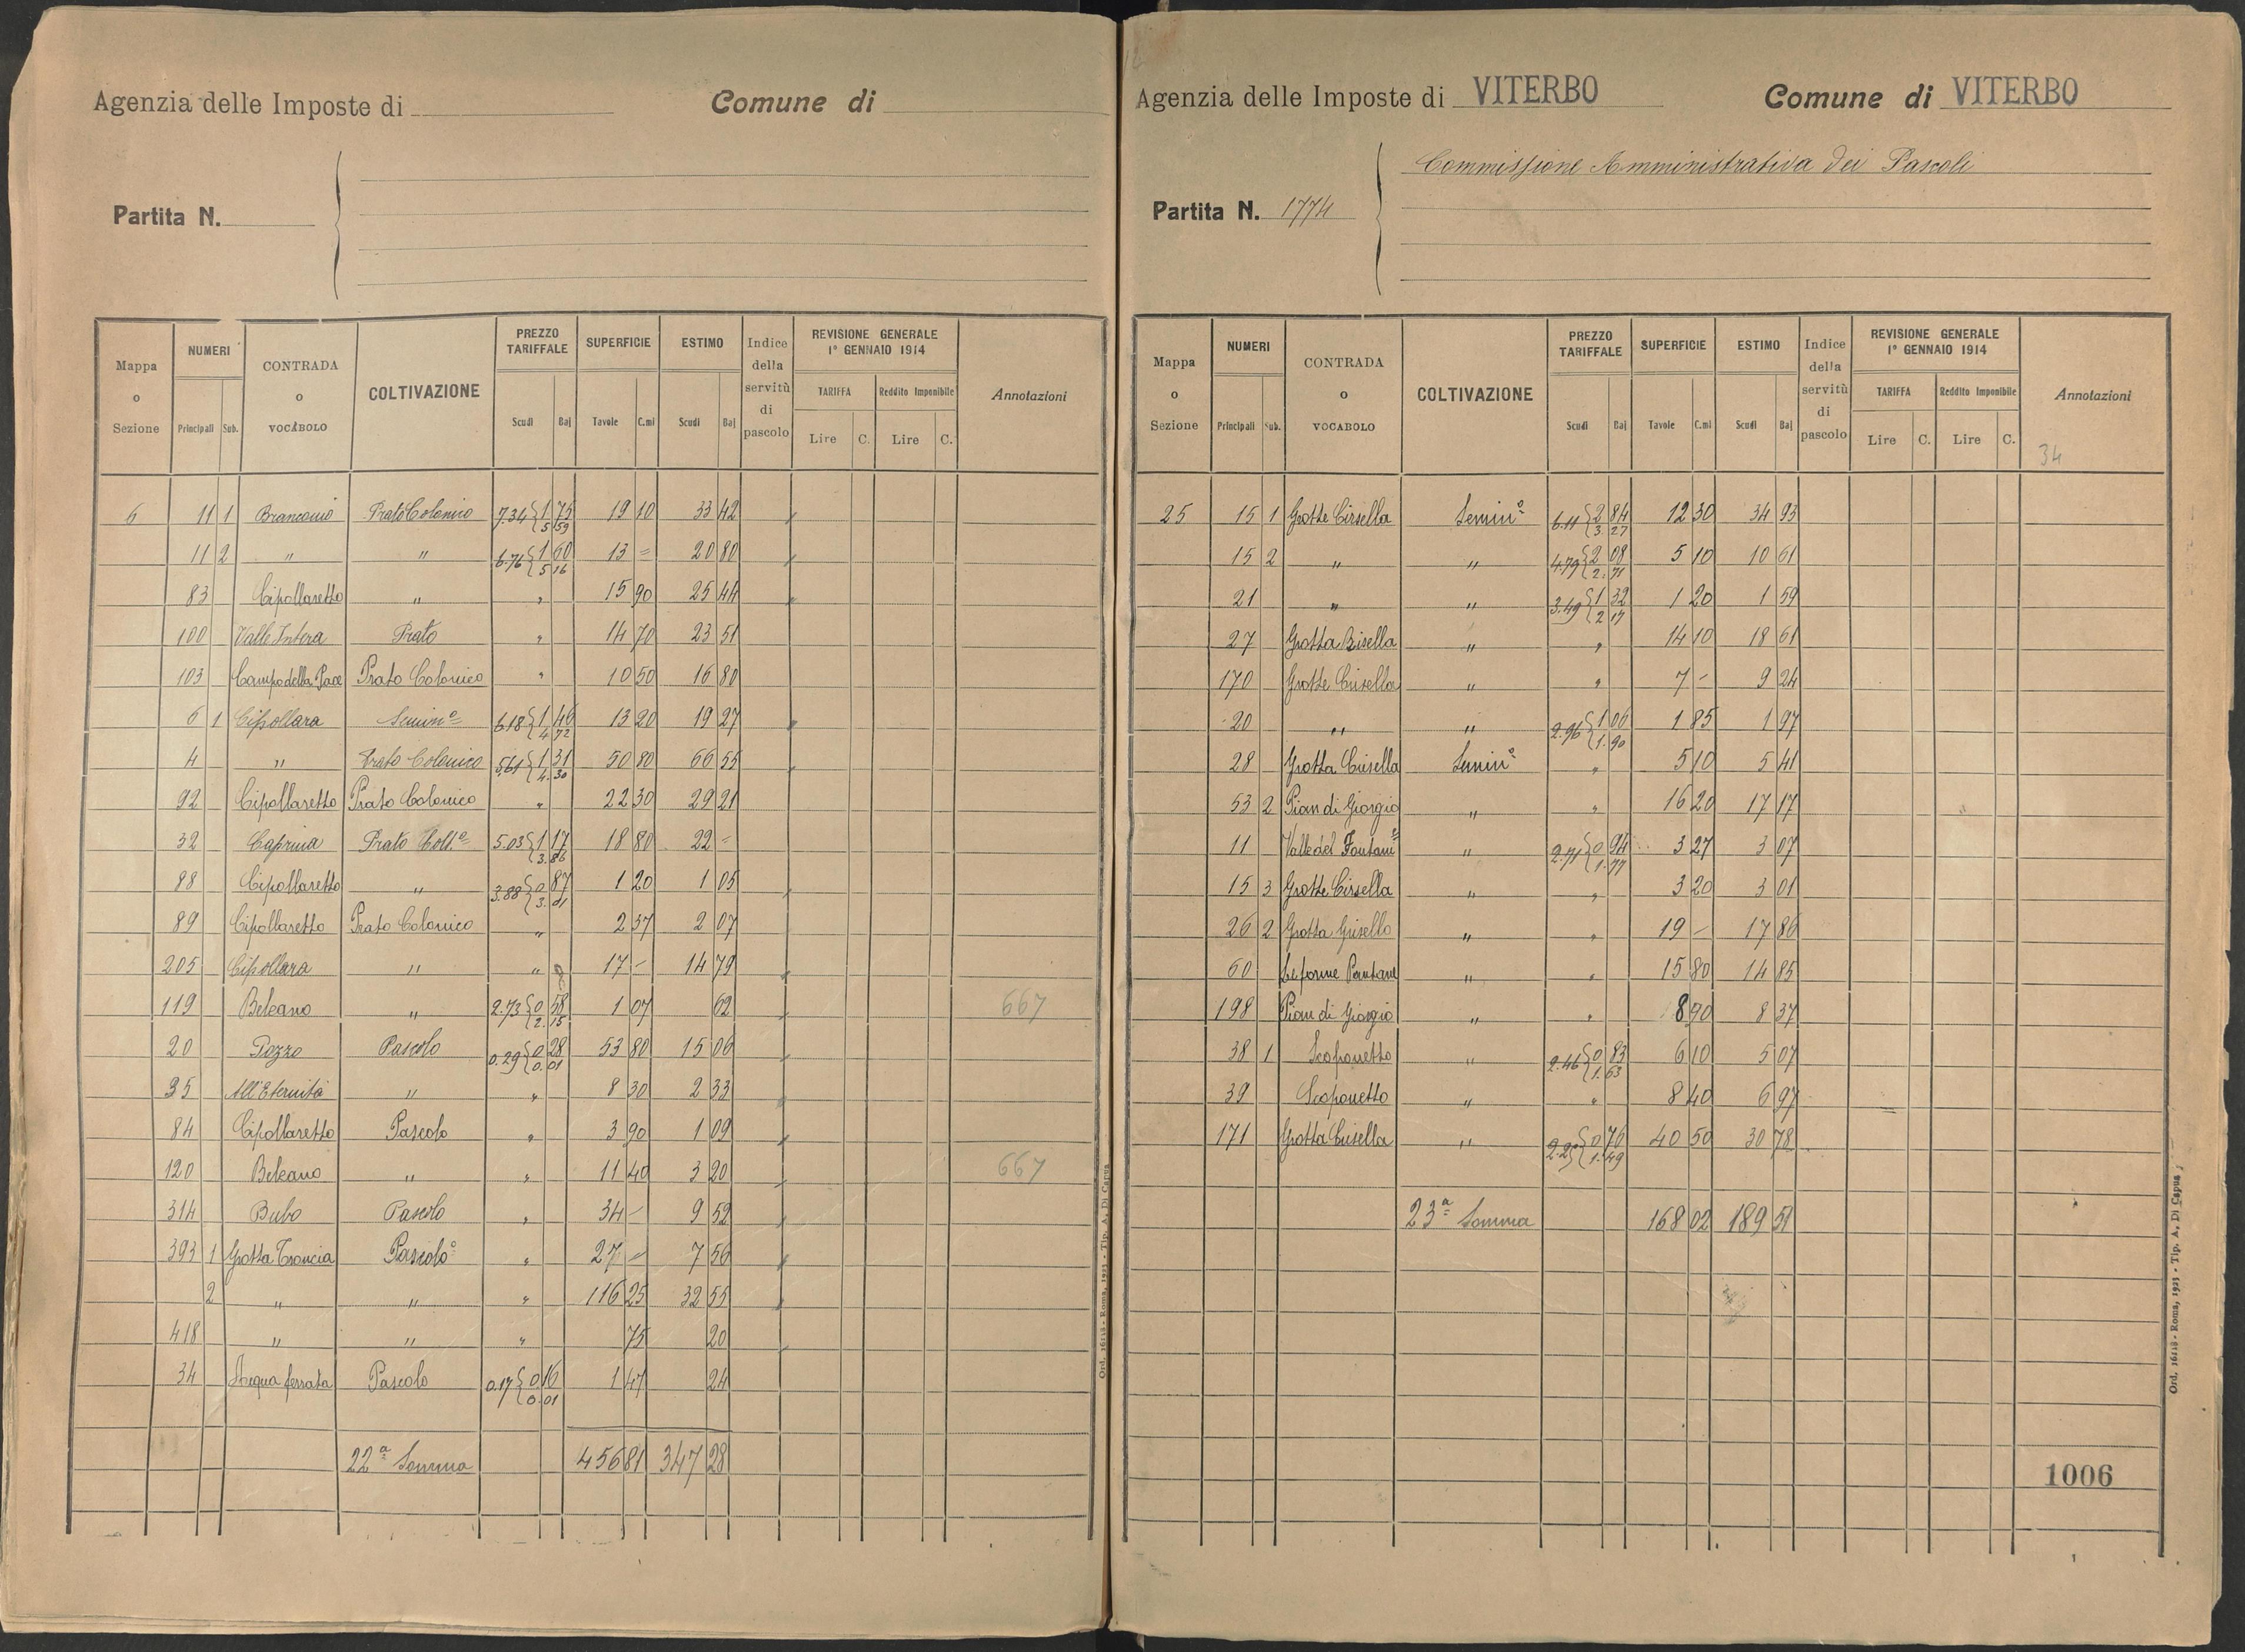 Agenzia delle Imposte di
Comune di
Partita N.
Mappa o Sezione | NUMERI Principali Sub. | CONTRADA o VOCABOLO | COLTIVAZIONE | PREZZO TARIFFALE Scudi Baj | SUPERFICIE Tavole C.mi | ESTIMO Scudi Baj | Indice della servitù di pascolo | REVISIONE GENERALE 1° GENNAIO 1914 TARIFFA Lire C. Reddito Imponibile Lire C. | Annotazioni
6 11 1 Branconio Prato Colonico 7.34 { 1 75 5 59 19 10 33 42
11 2 " " 6.76 { 1 60 5 16 13 = 20 80
83 Cipollaretto " " 15 90 25 44
100 Valle Intera Prato " 14 70 23 51
103 Campo della Pace Prato Colonico " 10 50 16 80
6 1 Cipollara Semin.º 6.18 { 1 46 4 72 13 20 19 27
4 " Prato Colonico 5.61 { 1 31 4.30 50 80 66 55
92 Cipollaretto Prato Colonico " 22 30 29 21
32 Caprina Prato Coll.º 5.03 { 1 17 3.86 18 80 22 -
88 Cipollaretto " 3.88 { 0 87 3.01 1 20 1 05
89 Cipollaretto Prato Colonico " 2 37 2 07
205 Cipollara " " 17 - 14 79
119 Beleano " 2.73 { 0 58 2.15 1 07 62 667
20 Pozzo Pascolo 0.29 { 0 28 0.01 53 80 15 06
35 All'Eternità " " 8 30 2 33
84 Cipollaretto Pascolo " 3 90 1 09
120 Beleano " " 11 40 3 20 667
314 Bubo Pascolo " 34 - 9 52
393 1 Grotta Troncia Pascolo " 27 - 7 56
2 " " " 116 25 32 55
418 " " " 75 20
34 Acqua ferrata Pascolo 0.17 { 0 16 0.01 1 47 24
22ª Somma 456 81 347 28
Ord. 16118 - Roma, 1923 - Tip. A. Di Capua
Agenzia delle Imposte di VITERBO
Comune di VITERBO
Commissione Amministrativa dei Pascoli
Partita N. 1774
Mappa o Sezione | NUMERI Principali Sub. | CONTRADA o VOCABOLO | COLTIVAZIONE | PREZZO TARIFFALE Scudi Baj | SUPERFICIE Tavole C.mi | ESTIMO Scudi Baj | Indice della servitù di pascolo | REVISIONE GENERALE 1° GENNAIO 1914 TARIFFA Lire C. Reddito Imponibile Lire C. | Annotazioni
34
25 15 1 Grotte Cirsella Semin.º 6.11 { 2 84 3.27 12 30 34 93
15 2 " " 4.79 { 2 08 2.71 5 10 10 61
21 " " 3.49 { 1 32 2 17 1 20 1 59
27 Grotta Crisella " " 14 10 18 61
170 Grotte Crisella " " 7 - 9 24
20 " " 2.96 { 1 06 1.90 1 85 1 97
28 Grotta Crisella Semin.º " 5 10 5 41
53 2 Pian di Giorgio " " 16 20 17 17
11 Valle del Fontan.e " 2.71 { 0 94 1.77 3 27 3 07
15 3 Grotte Cirsella " " 3 20 3 01
26 2 Grotta Grisella " " 19 - 17 86
60 " " 15 80 14 85
198 Pian di Giorgio " " 8 90 8 37
38 1 Scoponetto " 2.46 { 0 83 1.63 6 10 5 07
39 Scoponetto " " 8 40 6 97
171 Grotta Crisella " 2.25 { 0 76 1.49 40 50 30 78
23ª Somma 168 02 189 51
1006
Ord. 16118 - Roma, 1923 - Tip. A. Di Capua